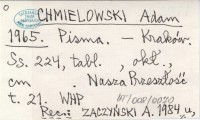 CHMIELOWSKI Adam
1965. Pisma. – Kraków.
Ss. 224, tabl. , okł.,
cm . Nasza Przeszłość
t. 21. WHP
Rec.: ZACZYŃSKI A. 1984, u,